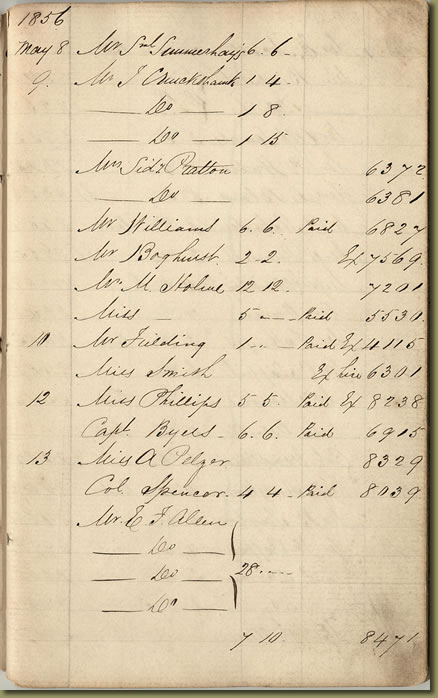 1856
May 8 Mr Saml Summerhays 6. 6 -
9. Mr J Cruickshank 1 4.
— Do — 1 8
— Do — 1 15
Mrs Sidy Pratton 6372
— Do 6381
Mr Williams 6. 6. Paid 6827
Mr Boghurst. 2 - 2. Ex 7569.
Mr M. Holme 12 12. 7201
Miss — 5 - - Paid 5530.
10 Mr Fielding 1 - - Paid Ex 4115
Miss Smith Ex hire 6301
12 Miss Phillips 5 5. Paid Ex 8238
Capt. Byers - 6. 6. Paid 6915
13 Miss A Pelzer 8329
Col. Spencer. 4 4 - Paid 8039
Mr. E. F. Allen
— Do —
— Do — 28. - -
— Do —
7 10. 8471